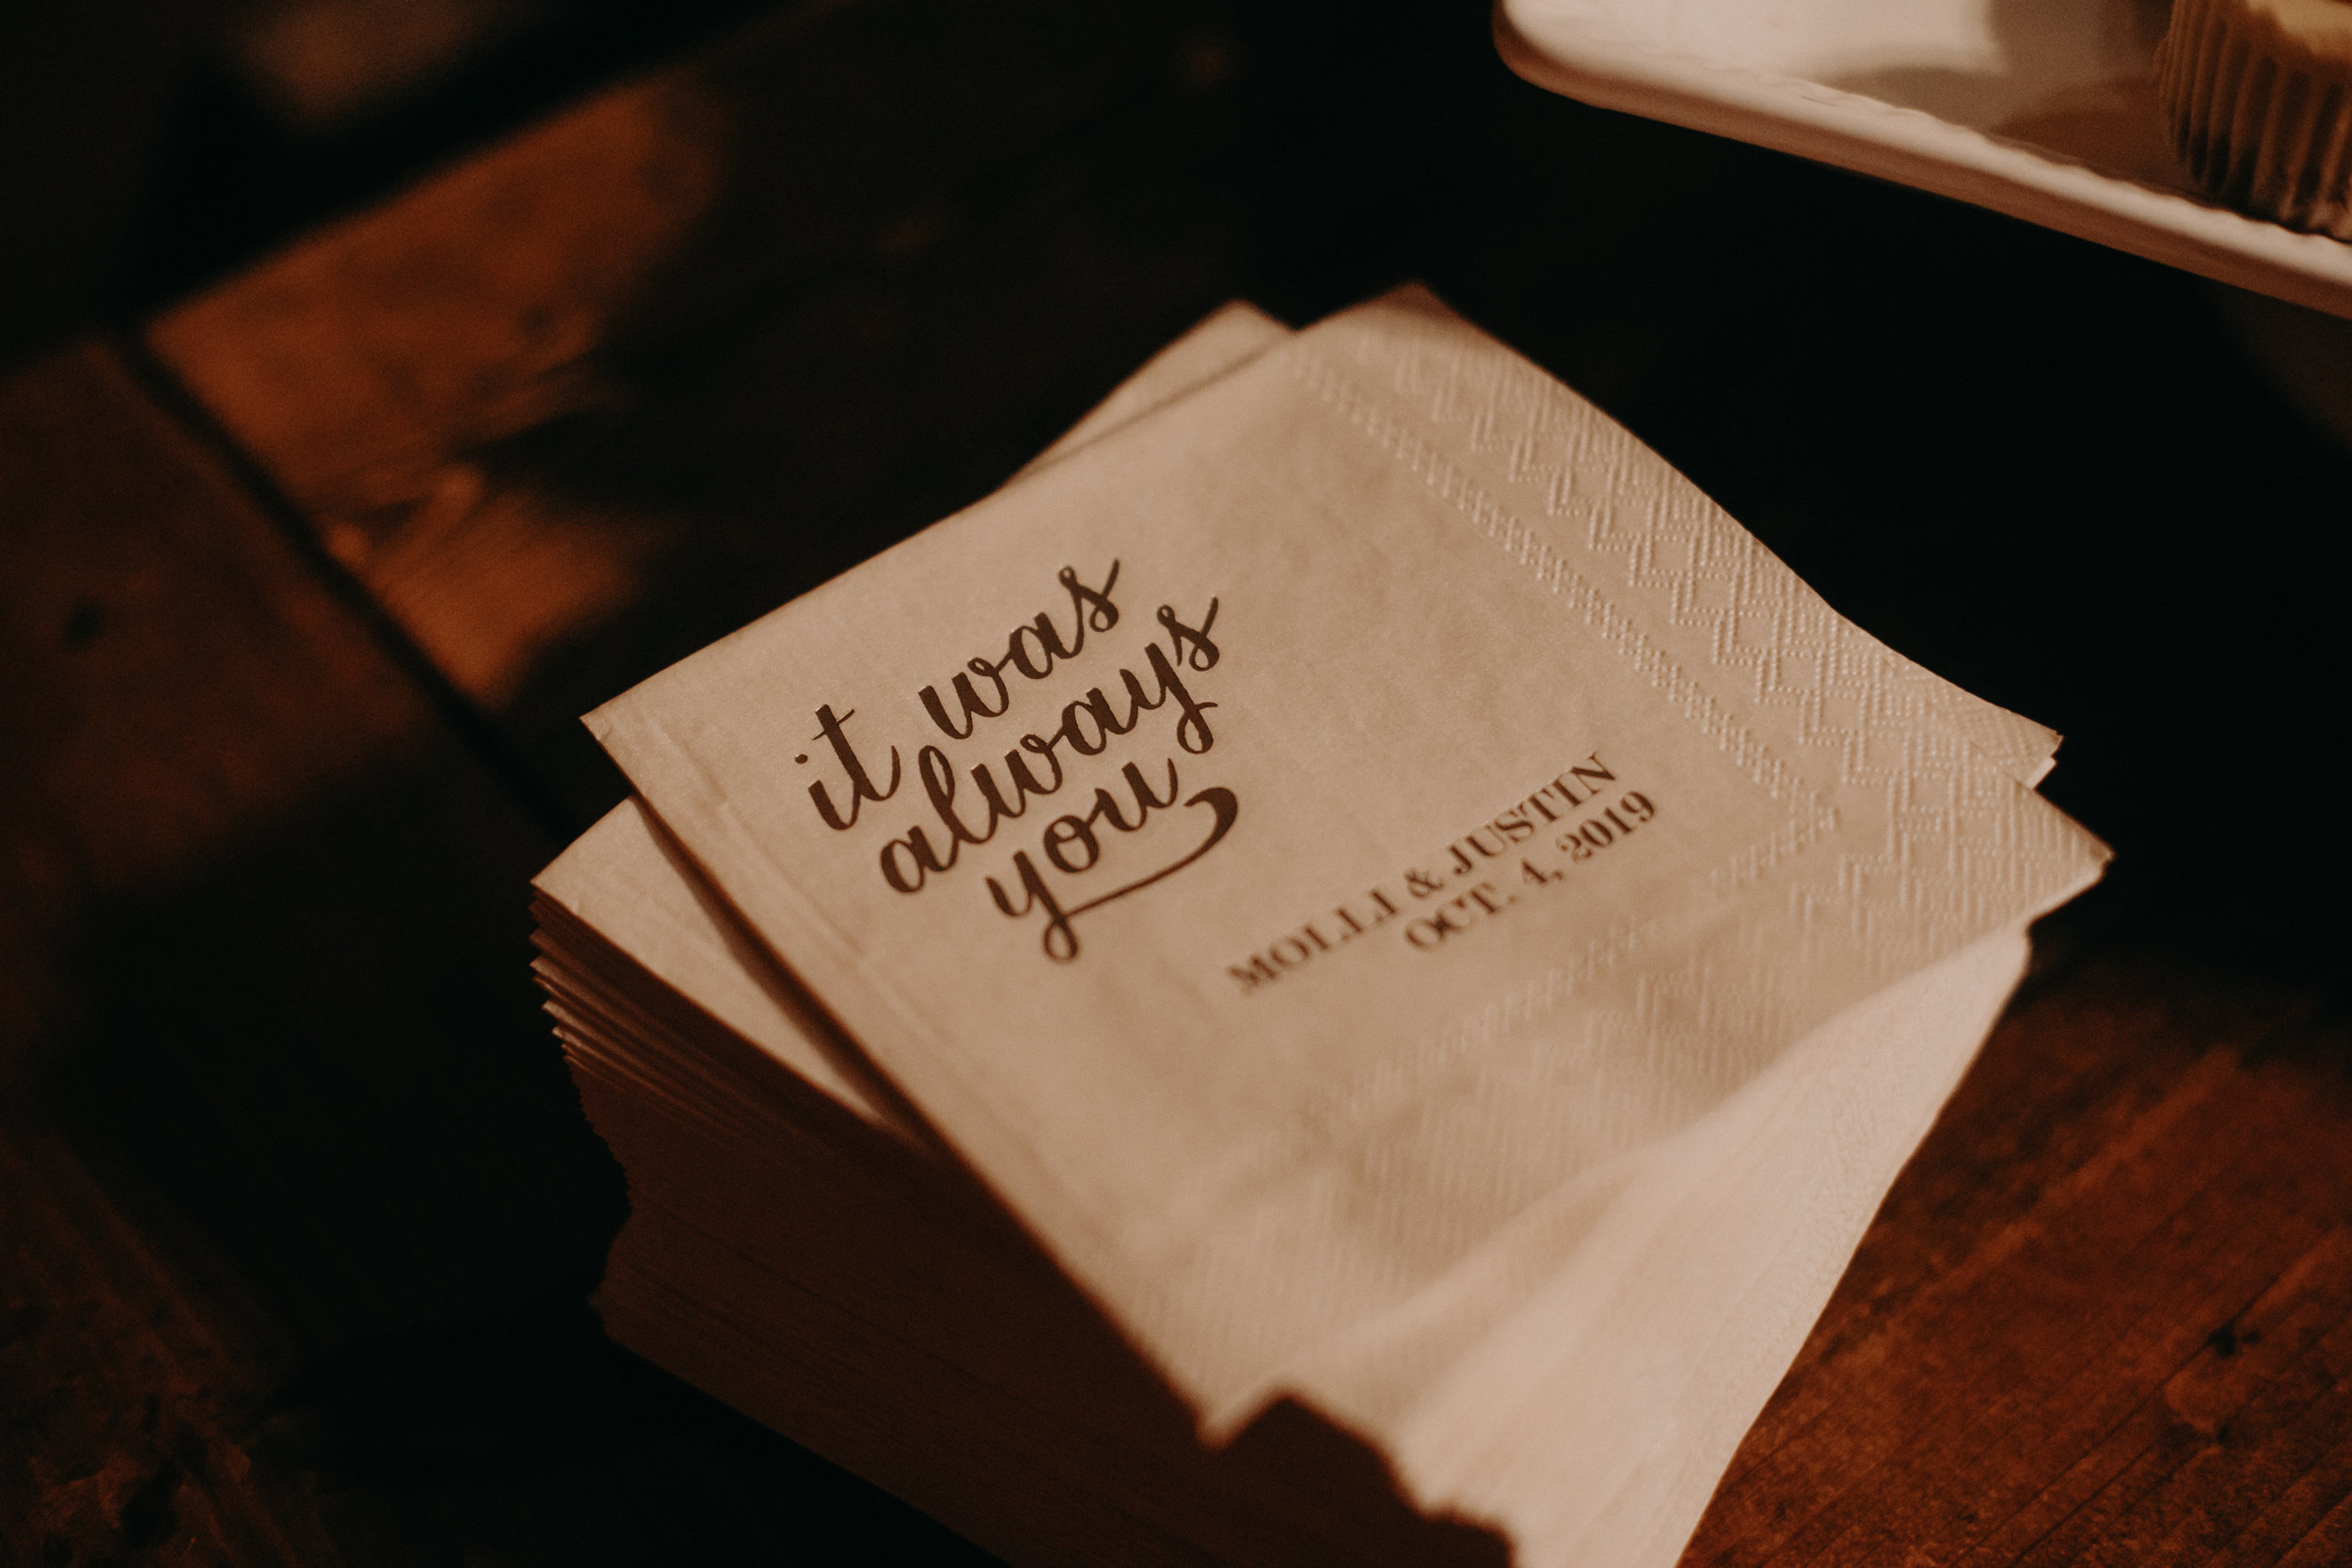 it was
always
you
MOLLI & JUSTIN
OCT. 4, 2019